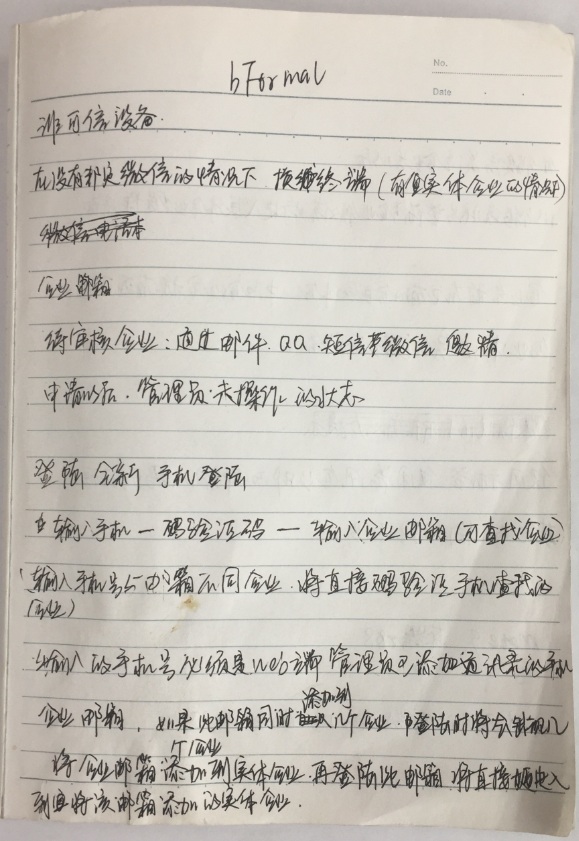 bFormal
No.
Date
非可信设备.
在没有绑定微信的情况下 换终端(有且实体企业的情况)
微信电话本
企业邮箱
待审核企业:通过邮件.QQ.短信.微信 邀请.
申请以后.管理员未操作.的状态
登陆 全新 手机登陆
输入手机一码验证码一输入企业邮箱(可查找企业)
输入手机号与邮箱不同企业.将直接码验证手机查找的
企业)
输入的手机号必须是web主端管理员可添加通讯录的手机
添加到
企业邮箱,如果此邮箱同时几个企业.登陆时将会
个企业
将企业邮箱添加到实体企业.再登陆此邮箱.将直接进入
到且将该邮箱添加的实体企业.